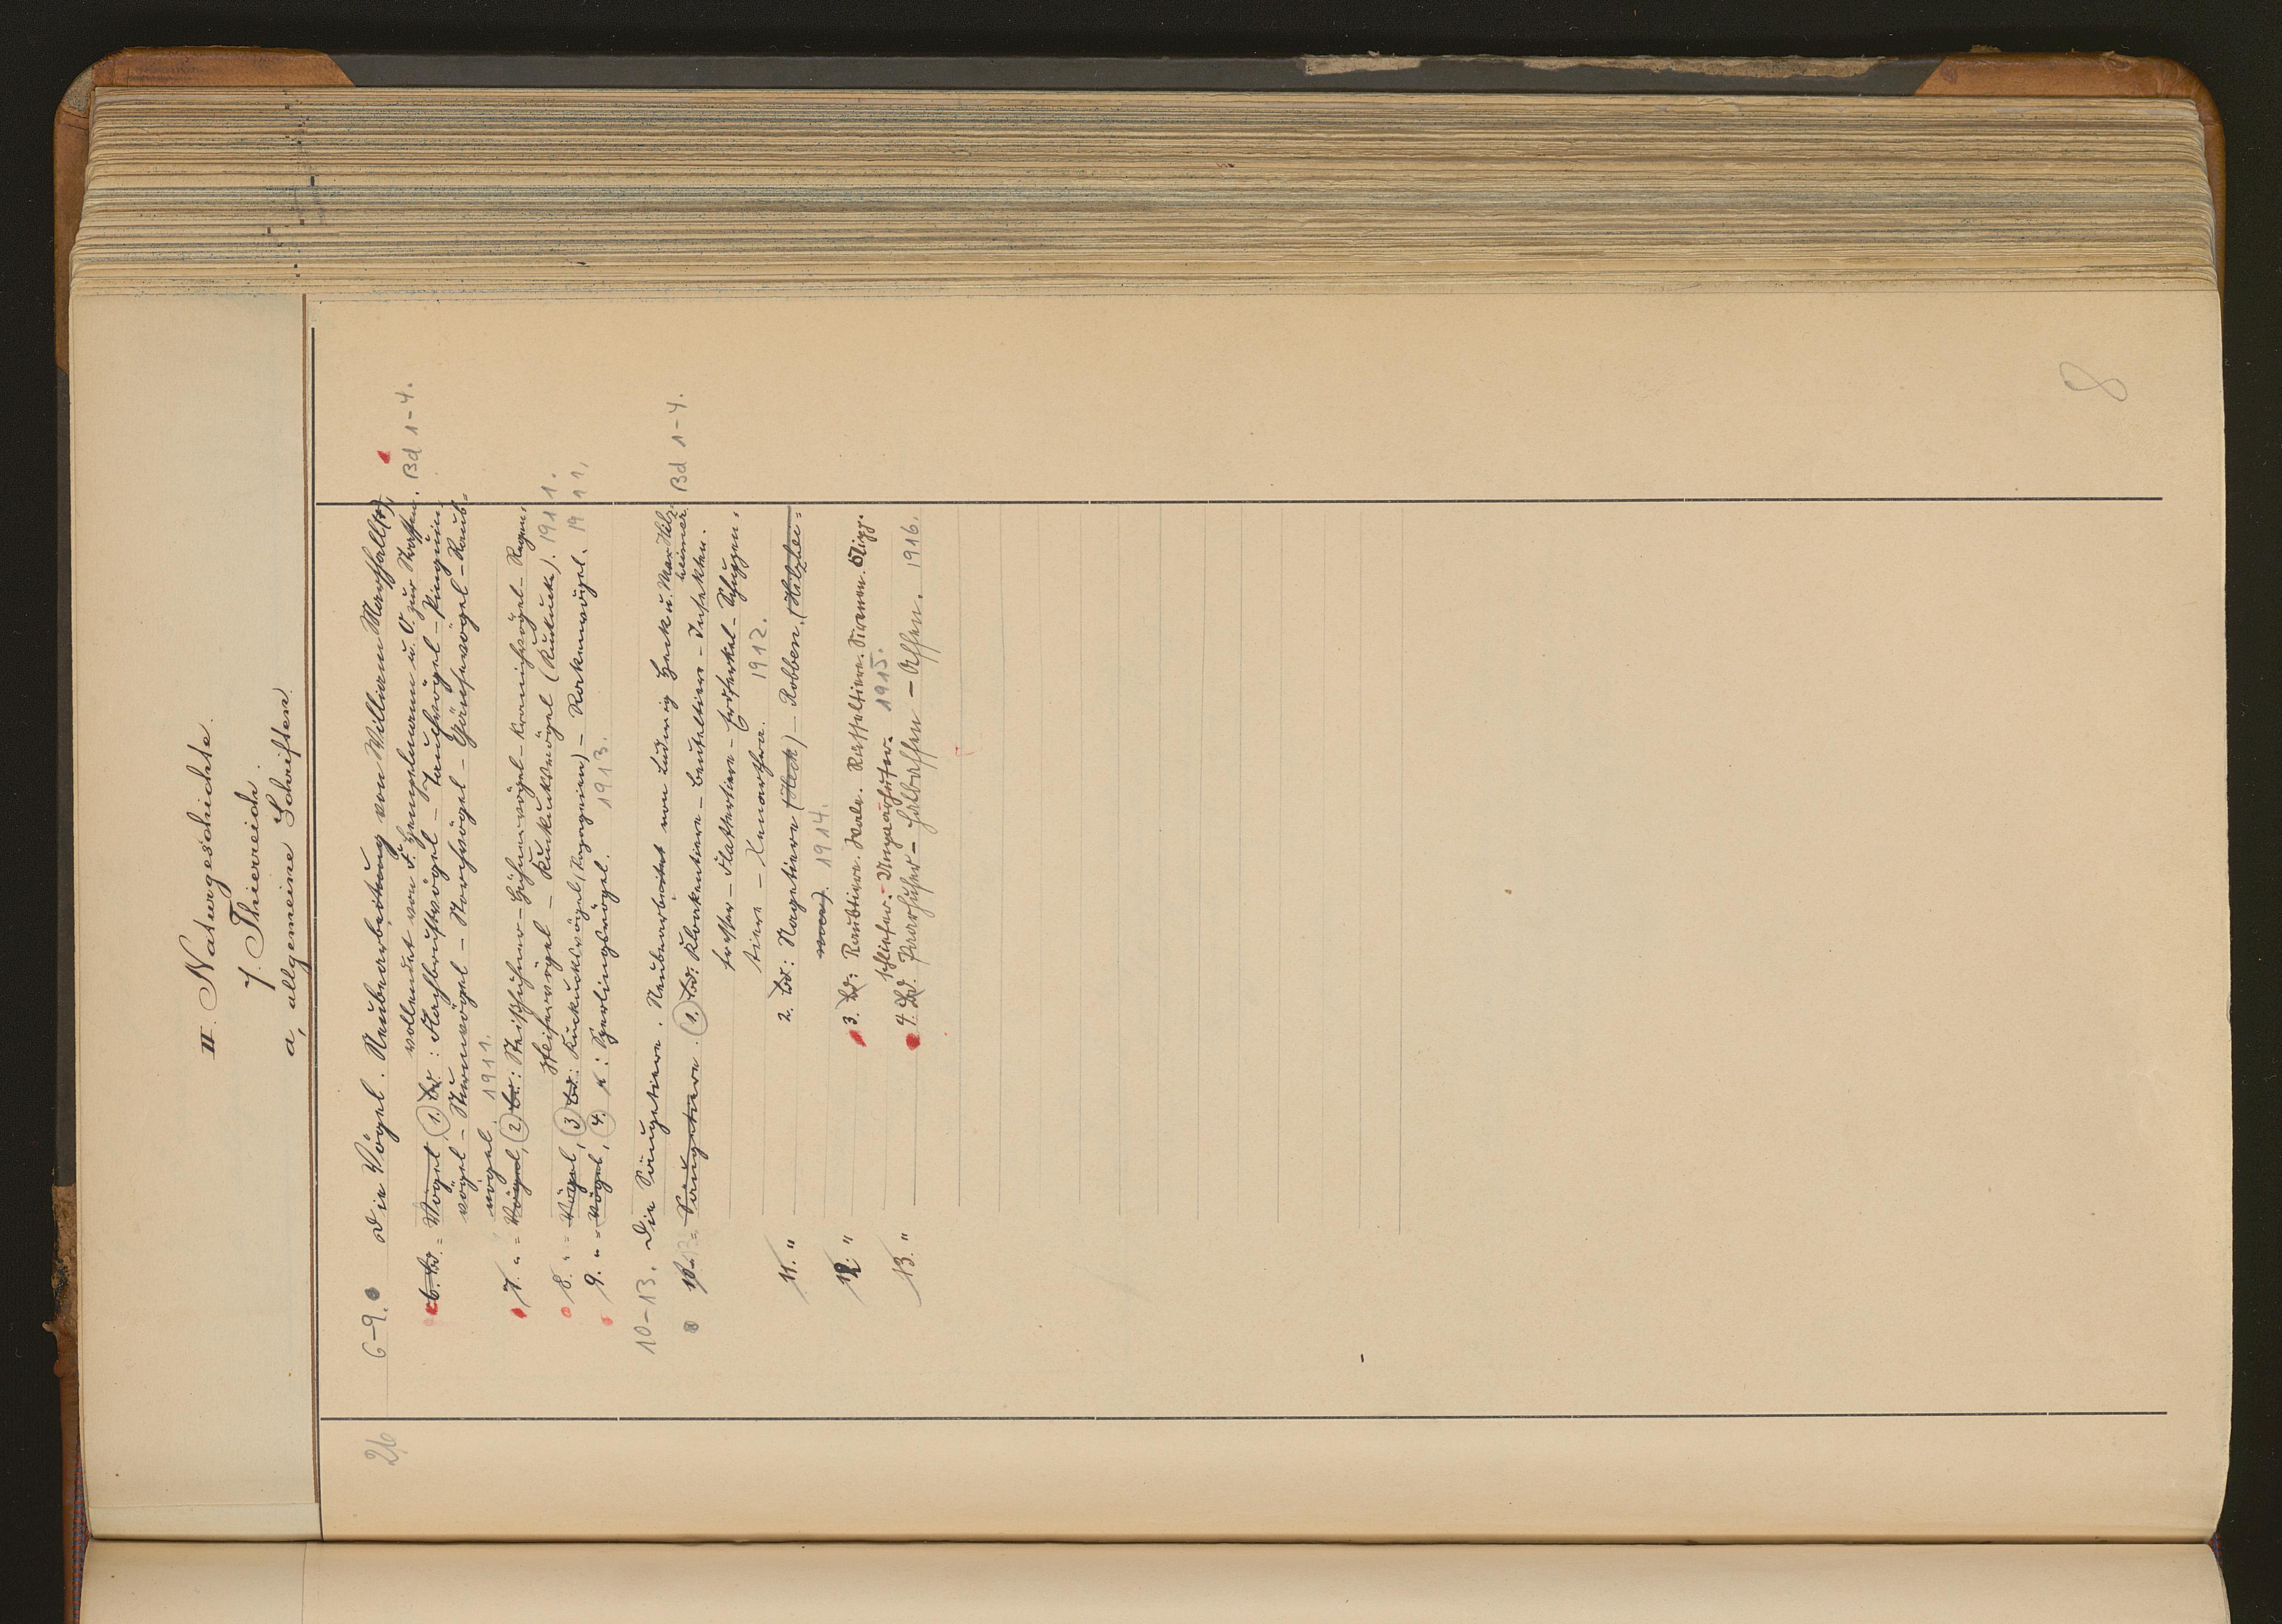 II. Naturgeschichte.
7. Thierreich.
a, allgemeine Schriften.
26
6-9. Die Vögel. Neubearbeitung von William Marshall (†),
vollendet von F. Hempelmann u. O. zur Strassen. Bd 1-4.
6. Bd. = Vögel, 1. Bd.: Flachbrustvögel - Tauchvögel - Pinguin-
vögel - Sturmvögel - Storchvögel - Gänsevögel - Raub-
vögel. 1911.
7. " = Vögel, 2. Bd.: Steißhühner - Hühnervögel - Kranichvögel - Regen-
pfeifervögel - Kuckucksvögel (Kuckucke). 1911.
8. " = Vögel, 3. Bd.: Kuckucksvögel (Papageien) - Rakenvögel. 1911,
9. " = Vögel, 4. " : Sperlingsvögel. 1913.
10-13. Die Säugetiere. Neubearbeitet von Ludwig Heck u. Max Hilz-
heimer. Bd 1-4.
10. = Säugetiere. 1. Bd: Kloakentiere - Beuteltiere - Insekten-
fresser - Flattertiere - Erdferkel - Schuppen-
tiere - Xenarthra. 1912.
11. " 2. Bd: Nagetiere (Heck) - Robben. (Hilzhei-
mer). 1914.
12. " 3. Bd: Raubtiere. Wale. Rüsseltiere. Sirenen. Klipp-
schliefer. Unpaarhufer. 1915.
13. " 4. Bd. Paarhufer - Halbaffen - Affen. 1916.
8